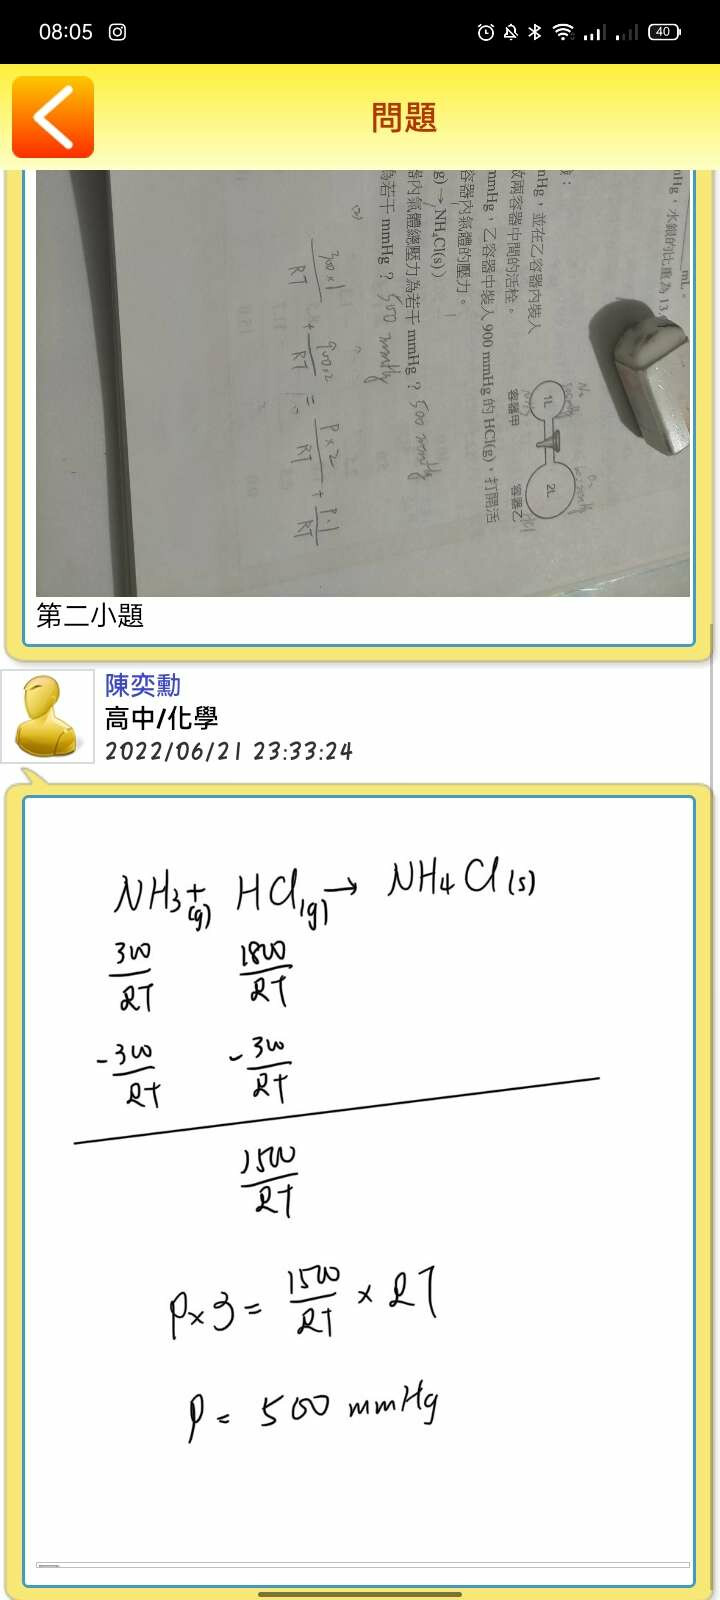 08:05
40
問題
mHg，水銀的比重為13.
mL。
mHg，並在乙容器內裝入
放兩容器中間的活栓。
mmHg，乙容器中裝入 900 mmHg 的 HCl(g)，打開活
容器內氣體的壓力。
g) → NH₄Cl(s)）
器內氣體總壓力為若干 mmHg？ 500 mmHg
為若干 mmHg？ 500 mmHg
1L
2L
容器甲
容器乙
(2)
300×1/RT + 900×2/RT = P×2/RT + P·1/RT
第二小題
陳奕勳
高中/化學
2022/06/21 23:33:24
NH3(g) + HCl(g) → NH4Cl(s)
300/RT 1800/RT
-300/RT -300/RT
1500/RT
P×3 = 1500/RT × RT
P = 500 mmHg